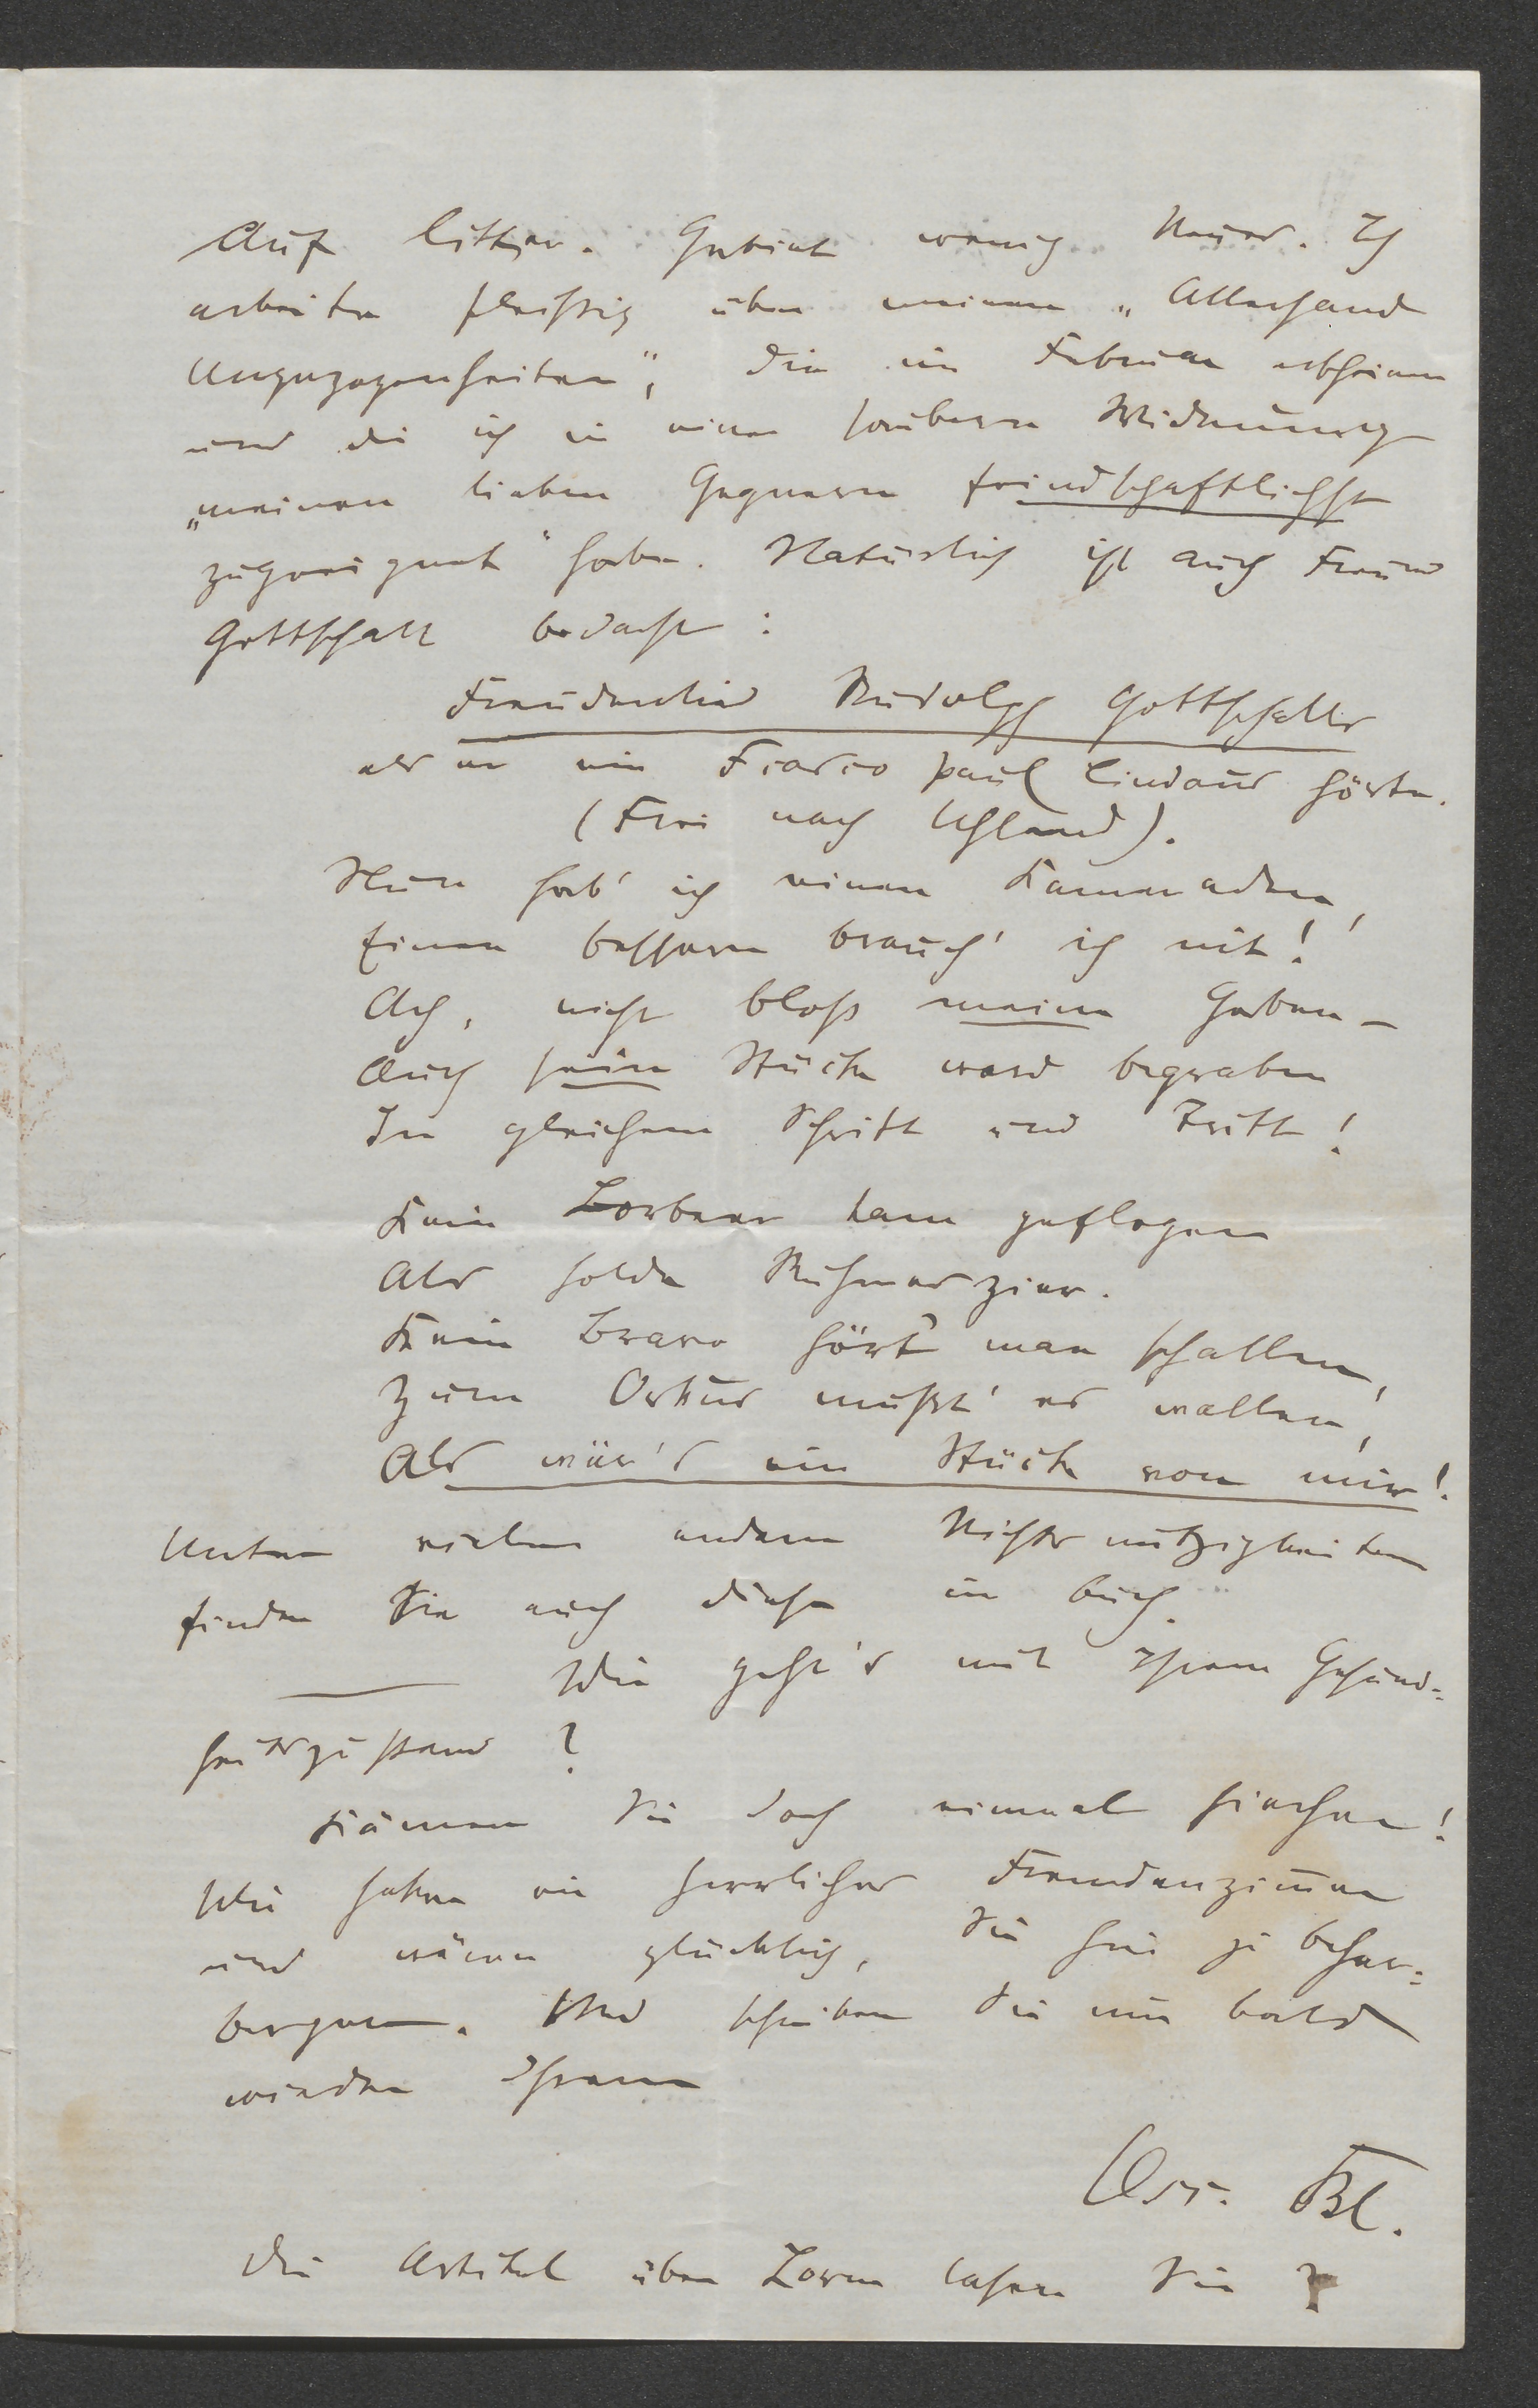 Auf litter. Gebiet wenig Neues. Ich
arbeite fleißig über meinen „Allerhand
Ungezogenheiten", die im Februar erscheinen
und die ich in einer saubern Widmung
„meinen lieben Gegnern feindschaftlichst
zugeeignet" habe. Natürlich ist auch Freund
Gottschall bedacht:
Freudenlied Rudolph Gottschalls
als er ein Fiasco Paul Lindaus hörte.
(Frei nach Uhland).
Nun hab' ich einen Kameraden,
Einen bessern brauch' ich nit!
Ach, nicht bloß meine Gaben –
Auch seine Stücke ward begraben
In gleichem Schritt und Tritt!
Kein Lorbeer kam geflogen
Als holde Ruhmeszier.
Kein Bravo hört man schallen,
Zum Orkus mußt' es wallen,
Als wär's ein Stück von mir!
Unter vielen andern Nichtsnutzigkeiten
finden Sie auch diese im Buch.
Wie geht's mit Ihrem Gesund-
heitszustand?
Kämen Sie doch einmal hierher!
Wir haben ein herrliches Fremdenzimmer
und wären glücklich, Sie hier zu beher-
bergen. Und schreiben Sie nun bald
wieder Ihrem
Osc. Bl.
Die Artikel über Lorm lasen Sie?